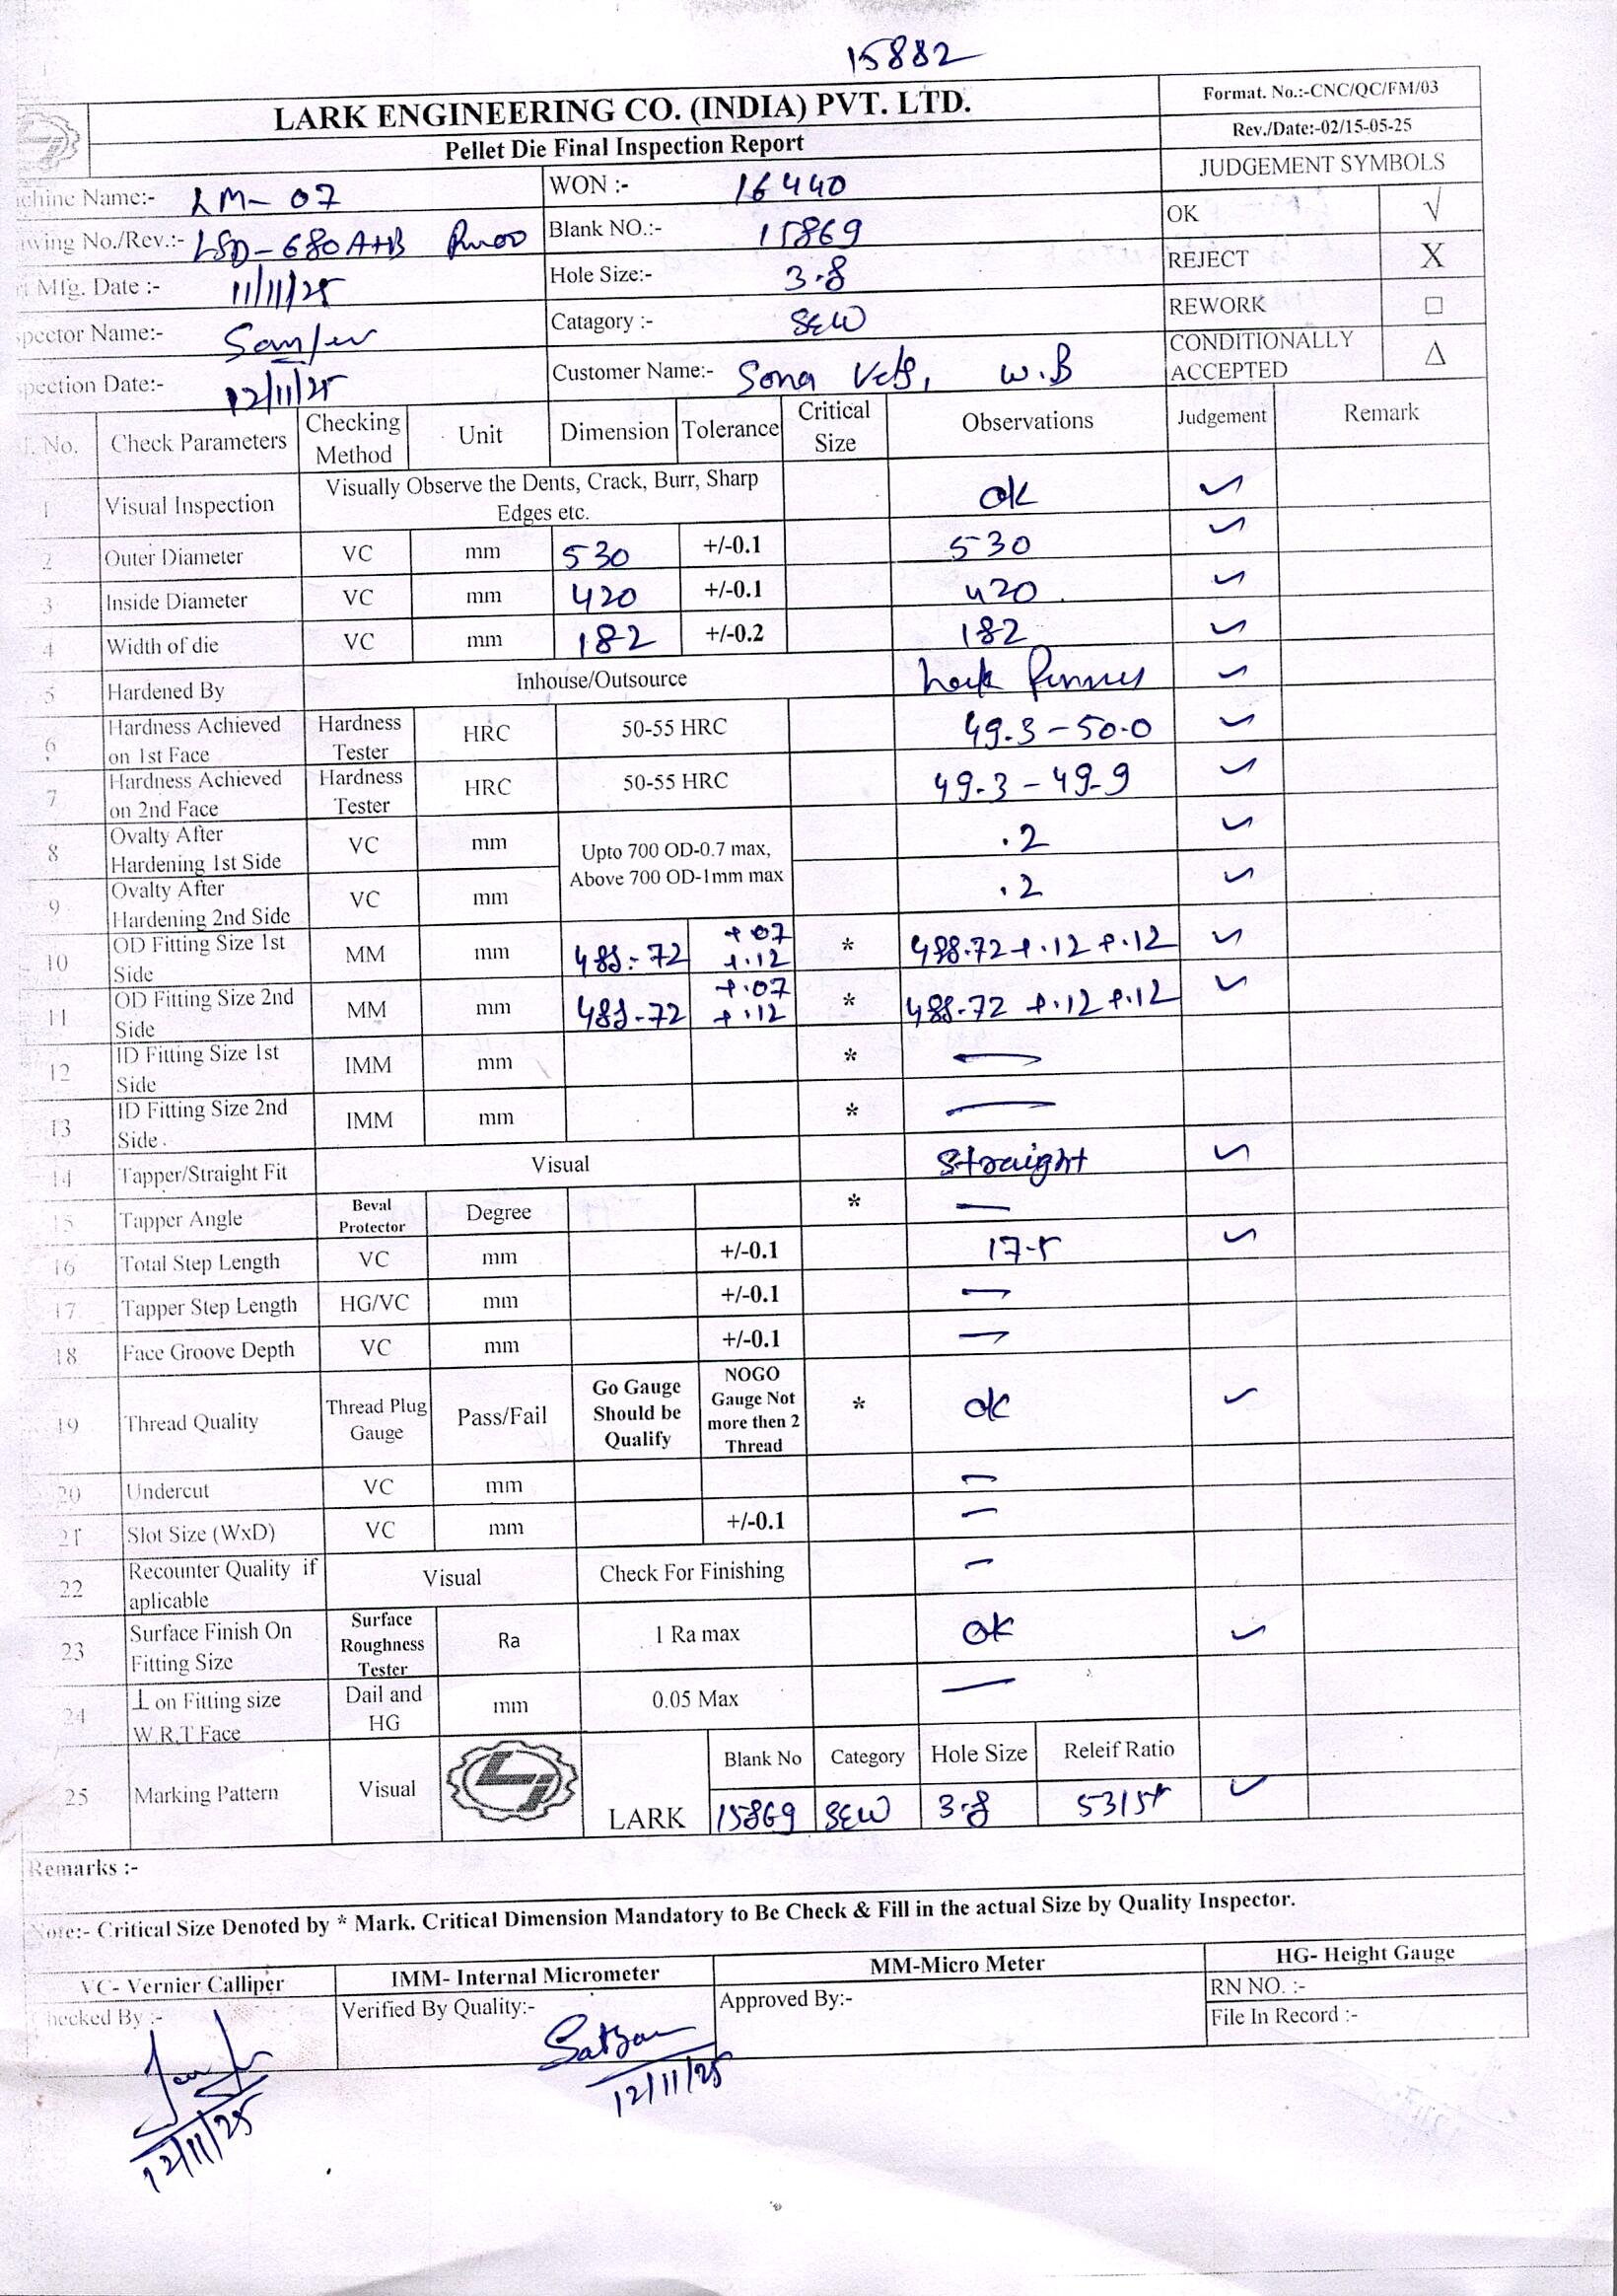 15882
LARK ENGINEERING CO. (INDIA) PVT. LTD.
Pellet Die Final Inspection Report
Format. No.:-CNC/QC/FM/03
Rev./Date:-02/15-05-25
JUDGEMENT SYMBOLS
chine Name:- LM-07 WON :- 16440
OK √
wing No./Rev.:- LSD-680A+B Blank NO.:- 15869
REJECT X
Mfg. Date :- 11/11/25 Hole Size:- 3.8
REWORK □
pector Name:- Catagory :- SEW
CONDITIONALLY ACCEPTED Δ
pection Date:- 12/11/25 Customer Name:- Sona Vets, W.B
No. Check Parameters Checking Method Unit Dimension Tolerance Critical Size Observations Judgement Remark
1 Visual Inspection Visually Observe the Dents, Crack, Burr, Sharp Edges etc. ok ✓
2 Outer Diameter VC mm 530 +/-0.1 530 ✓
3 Inside Diameter VC mm 420 +/-0.1 420 ✓
4 Width of die VC mm 182 +/-0.2 182 ✓
5 Hardened By Inhouse/Outsource ✓
6 Hardness Achieved on 1st Face Hardness Tester HRC 50-55 HRC 49.3-50.0 ✓
7 Hardness Achieved on 2nd Face Hardness Tester HRC 50-55 HRC 49.3-49.9 ✓
8 Ovalty After Hardening 1st Side VC mm Upto 700 OD-0.7 max, Above 700 OD-1mm max .2 ✓
9 Ovalty After Hardening 2nd Side VC mm .2 ✓
10 OD Fitting Size 1st Side MM mm 488.72 +.07 +.12 * 488.72 +.12 +.12 ✓
11 OD Fitting Size 2nd Side MM mm 488.72 +.07 +.12 * 488.72 +.12 +.12 ✓
12 ID Fitting Size 1st Side IMM mm * —
13 ID Fitting Size 2nd Side . IMM mm * —
14 Tapper/Straight Fit Visual Straight ✓
15 Tapper Angle Beval Protector Degree * —
16 Total Step Length VC mm +/-0.1 17.5 ✓
17 Tapper Step Length HG/VC mm +/-0.1 —
18 Face Groove Depth VC mm +/-0.1 —
19 Thread Quality Thread Plug Gauge Pass/Fail Go Gauge Should be Qualify NOGO Gauge Not more then 2 Thread * ok ✓
20 Undercut VC mm —
21 Slot Size (WxD) VC mm +/-0.1 —
22 Recounter Quality if aplicable Visual Check For Finishing —
23 Surface Finish On Fitting Size Surface Roughness Tester Ra 1 Ra max ok ✓
24 ⊥ on Fitting size W.R.T Face Dail and HG mm 0.05 Max —
25 Marking Pattern Visual LARK Blank No Category Hole Size Releif Ratio
15869 SEW 3.8 ✓
Remarks :-
Note:- Critical Size Denoted by * Mark. Critical Dimension Mandatory to Be Check & Fill in the actual Size by Quality Inspector.
VC- Vernier Calliper IMM- Internal Micrometer MM-Micro Meter HG- Height Gauge
hecked By :- Verified By Quality:- Approved By:- RN NO. :-
File In Record :-
12/11/25
12/11/25